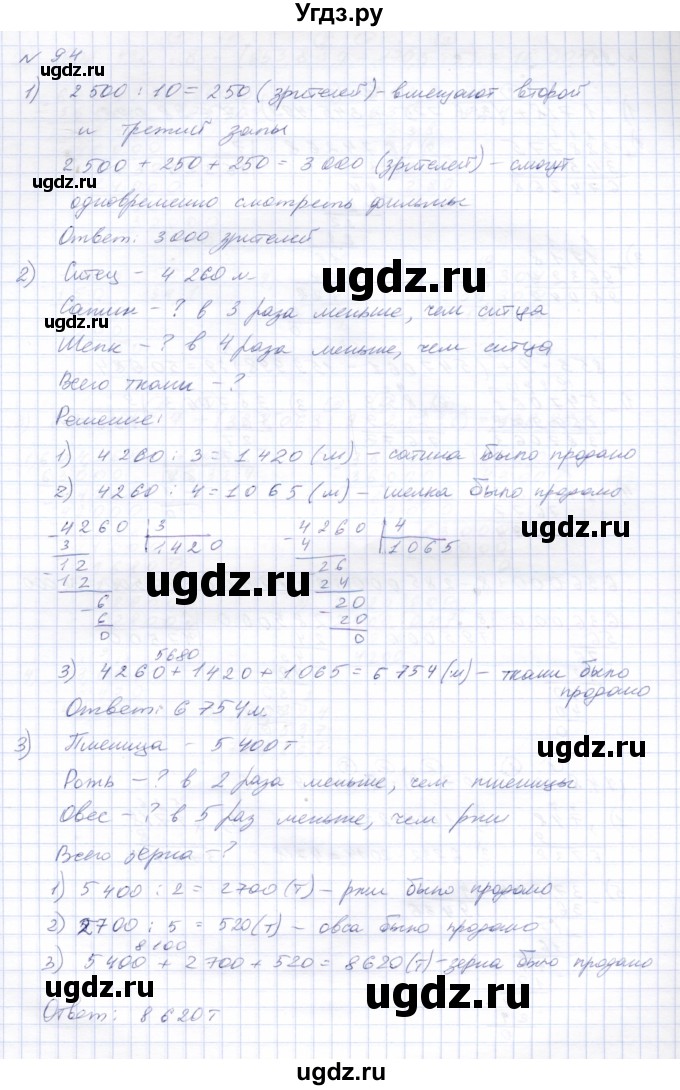 Угдз.ру
№ 94
ugdz.ru
1) 2 500 : 10 = 250 (зрителей) - вмещают второй
и третий залы
2 500 + 250 + 250 = 3 000 (зрителей) - смогут
ugdz.ru
одновременно смотреть фильмы
Ответ: 3 000 зрителей
2) Ситец - 4 260 м
ugdz.ru
Сатин - ? в 3 раза меньше, чем ситца
ugdz.ru
Шелк - ? в 4 раза меньше, чем ситца
Всего ткани - ?
Решение:
1) 4 260 : 3 = 1 420 (м) - сатина было продано
2) 4260 : 4 = 1 0 6 5 (м) - шелка было продано
ugdz.ru
-4260 3 -4260 4
3 1420 4 1065
-12 -26
12 24
ugdz.ru
-6 -20
6 20
0 0
5680
3) 4 260 + 1 420 + 1 065 = 6 754 (м) - ткани было
продано
Ответ: 6 754 м
3) Пшеница - 5 400 т
ugdz.ru
Рожь - ? в 2 раза меньше, чем пшеницы
Овес - ? в 5 раз меньше, чем ржи
Всего зерна - ?
1) 5 400 : 2 = 2700 (т) - ржи было продано
2) 2700 : 5 = 520 (т) - овса было продано
8 100
3) 5 400 + 2 700 + 520 = 8 620 (т) - зерна было продано
ugdz.ru
ugdz.ru
Ответ: 8 620 т
ugdz.ru